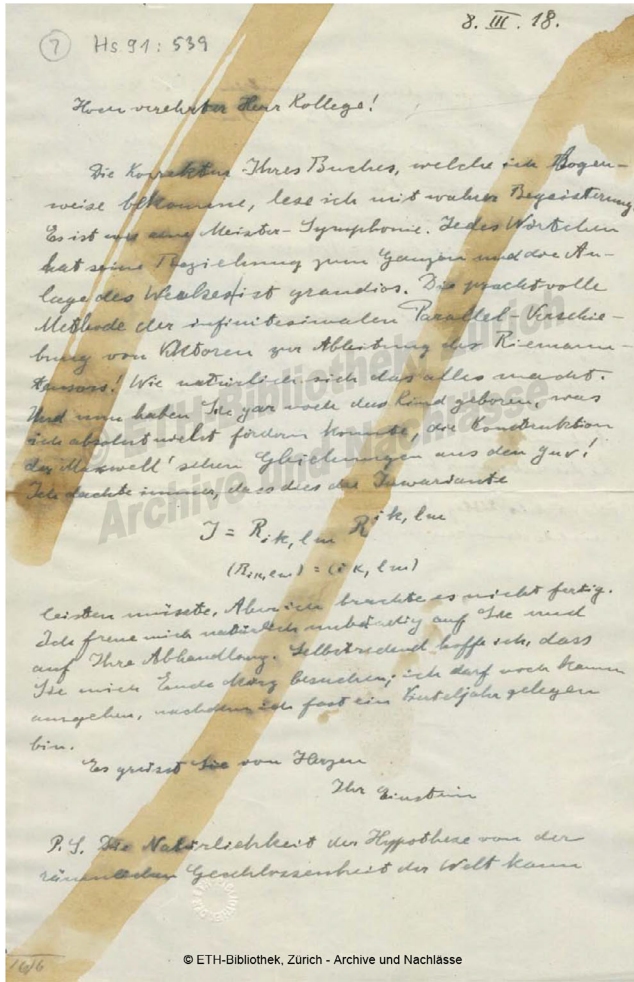 8. III. 18.
7 Hs 91: 539
Hochverehrter Herr Kollege!
Die Korrektur Ihres Buches, welche ich Bogen-
weise bekomme, lese ich mit wahrer Begeisterung.
Es ist wie eine Meister-Symphonie. Jedes Wörtchen
hat seine Beziehung zum Ganzen und die An-
lage des Werkes ist grandios. Die prachtvolle
Methode der infinitesimalen Parallel-Verschie-
bung von Vektoren zur Ableitung des Riemann-
tensors! Wie natürlich sich das alles macht.
Und nun haben Sie gar noch das Kind geboren, was
ich absolut nicht fördern konnte, die Konstruktion
der Maxwell'schen Gleichungen aus den gμν!
Ich dachte immer, dass dies die Invariante
J = Rik, lm R^ik, lm
(Rik, lm) = (ik, lm)
leisten müsste. Aber ich brachte es nicht fertig.
Ich freue mich natürlich unbändig auf Sie und
auf Ihre Abhandlung. Selbstredend hoffe ich, dass
Sie mich Ende März besuchen; ich darf noch kaum
ausgehen, nachdem ich fast ein Vierteljahr gelegen
bin.
Es grüsst Sie von Herzen
Ihr Einstein
P.S. Die Natürlichkeit der Hypothese von der
räumlichen Geschlossenheit der Welt kann
© ETH-Bibliothek, Zürich
Archive und Nachlässe
© ETH-Bibliothek, Zürich - Archive und Nachlässe